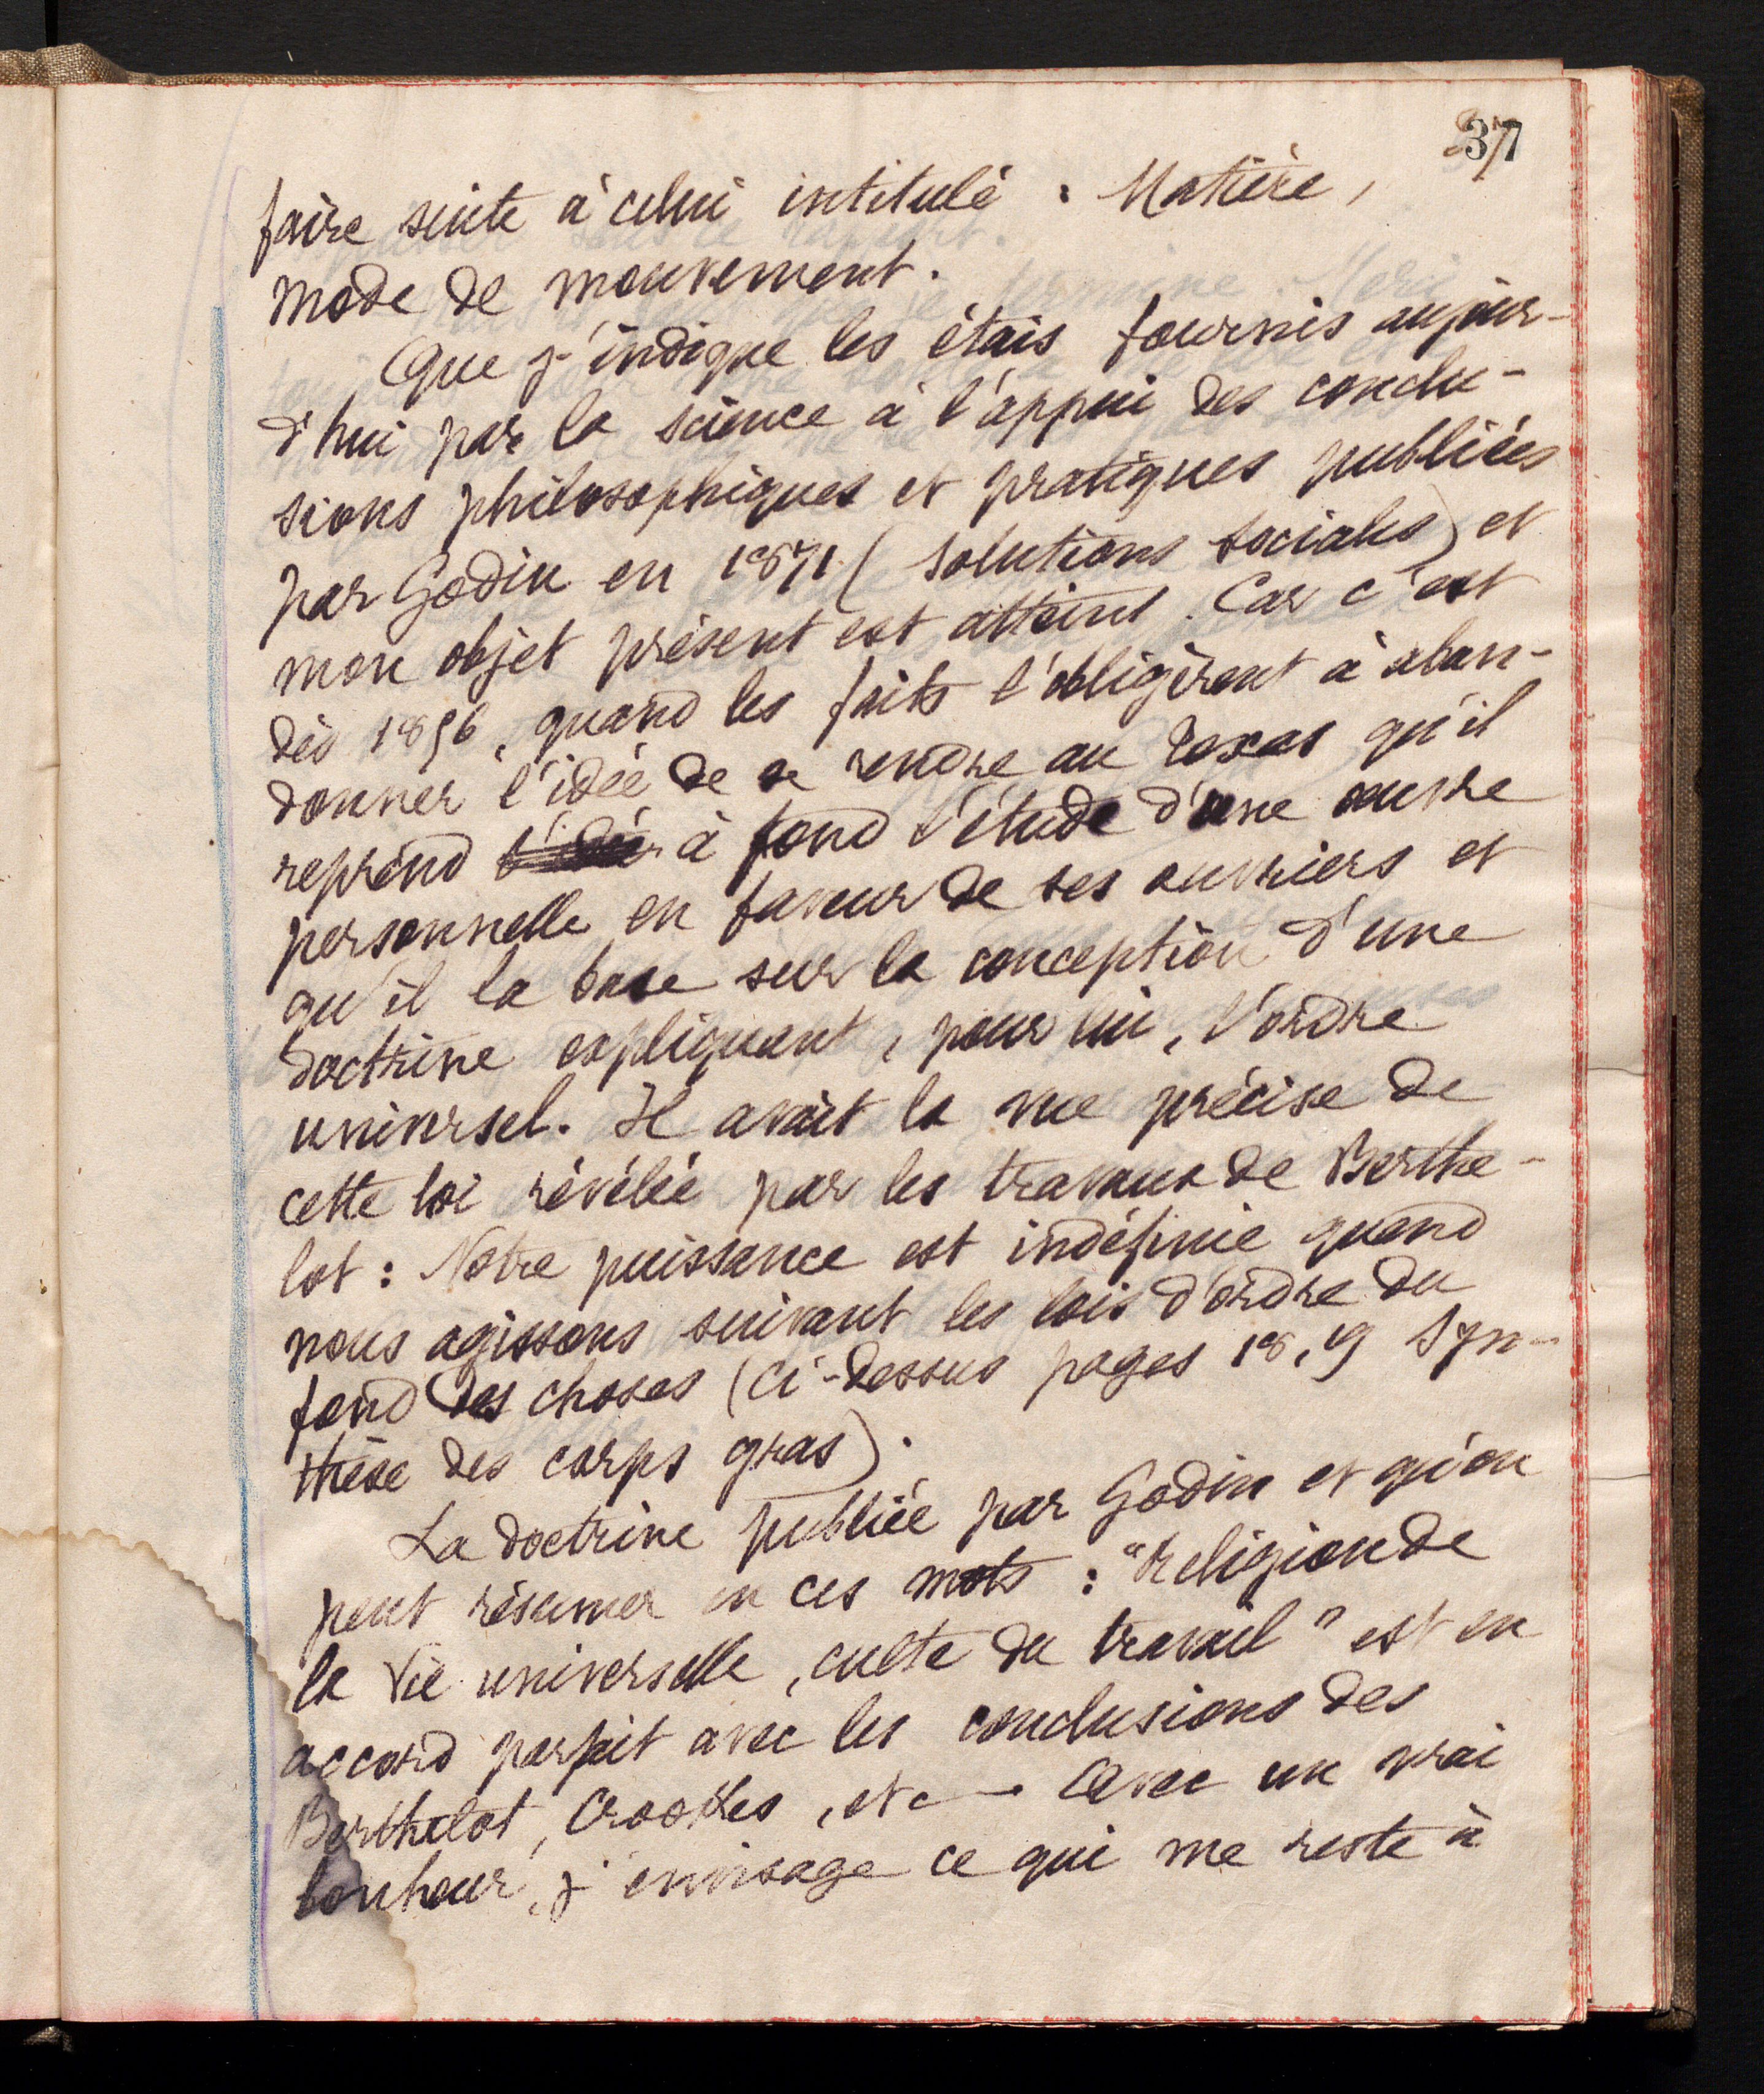 37
faire suite à celui intitulé : Matière,
mode de mouvement.
Que j'indique les étais fournis aujour-
d'hui par la science à l'appui des conclu-
sions philosophiques et pratiques publiées
par Godin en 1871 (Solutions sociales) et
mon objet présent est atteint. Car c'est
dès 1856, quand les faits l'obligèrent à aban-
donner l'idée de se rendre au Texas qu'il
reprend l'idée à fond l'étude d'une œuvre
personnelle en faveur de ses ouvriers et
qu'il la base sur la conception d'une
doctrine expliquant, pour lui, l'ordre
universel. Il avait la vue précise de
cette loi révélée par les travaux de Berthe-
lot : Notre puissance est indéfinie quand
nous agissons suivant les lois d'ordre du
fond des choses (Ci-dessus pages 18, 19 Syn-
thèse des corps gras).
La doctrine publiée par Godin et qu'on
peut résumer en ces mots : "Religion de
la Vie universelle, culte du travail" est en
accord parfait avec les conclusions des
Berthelot, Crookes, etc — Avec un vrai
bonheur, j'envisage ce qui me reste à